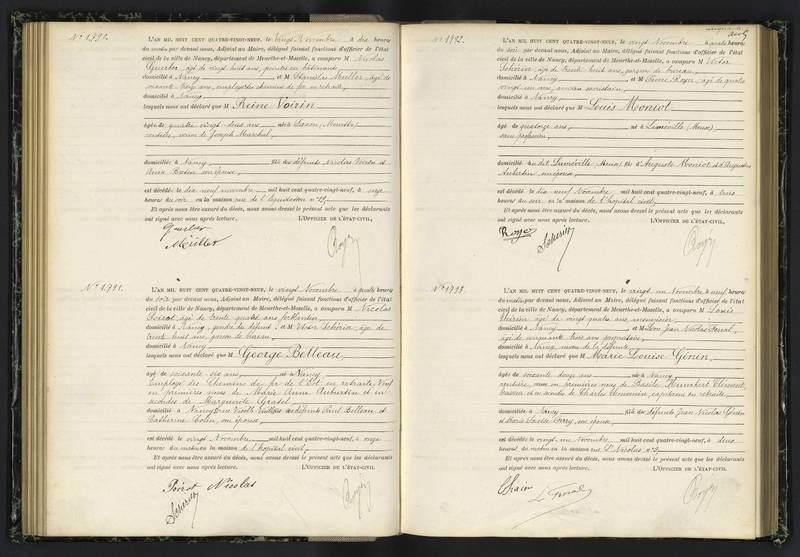 N° 1990.
L'AN MIL HUIT CENT QUATRE-VINGT-NEUF, le vingt Novembre à dix heures
du matin par devant nous, Adjoint au Maire, délégué faisant fonctions d'officier de l'état
civil de la ville de Nancy, département de Meurthe-et-Moselle, a comparu M Nicolas
âgé de vingt huit ans,
domicilié à Nancy et M Stanislas Muller, âgé de
soixante ans, employé chemins de fer en retraite,
domicilié à Nancy
lesquels nous ont déclaré que M Reine Voirin
âgée de quatre-vingt-deux ans née à (Meurthe)
rentière, veuve de Joseph Marchal,
domiciliée à Nancy fille des défunts Nicolas Voirin et
Anne son épouse,
est décédée le dix neuf novembre mil huit cent quatre-vingt-neuf, à onze
heures du soir en la maison rue de
Et après nous être assuré du décès, nous avons dressé le présent acte que les déclarants
ont signé avec nous après lecture. L'OFFICIER DE L'ÉTAT-CIVIL,
Muller
N° 1991.
L'AN MIL HUIT CENT QUATRE-VINGT-NEUF, le vingt Novembre à quatre heures
du soir par devant nous, Adjoint au Maire, délégué faisant fonctions d'officier de l'état
civil de la ville de Nancy, département de Meurthe-et-Moselle, a comparu M Nicolas
Poirot, âgé de trente quatre ans,
domicilié à Nancy, gendre du défunt et M Victor Schérer, âgé de
trente huit ans, garçon de bureau,
domicilié à Nancy
lesquels nous ont déclaré que M George Belleau,
âgé de soixante-six ans, né à Nancy
Employé des Chemins de fer de l'Est en retraite, Veuf
en premières noces de Marie Anne Aubertin et en
secondes de Marguerite
domicilié à Nancy des défunts Paul Belleau et
Catherine Colin, son épouse,
est décédé le vingt Novembre mil huit cent quatre-vingt-neuf, à onze
heures du matin en la maison de l'hôpital civil,
Et après nous être assuré du décès, nous avons dressé le présent acte que les déclarants
ont signé avec nous après lecture. L'OFFICIER DE L'ÉTAT-CIVIL,
Poirot Nicolas
N° 1992.
L'AN MIL HUIT CENT QUATRE-VINGT-NEUF, le vingt Novembre à quatre heures
du soir par devant nous, Adjoint au Maire, délégué faisant fonctions d'officier de l'état
civil de la ville de Nancy, département de Meurthe-et-Moselle, a comparu M Victor
Schérer, âgé de trente huit ans, garçon de bureau,
domicilié à Nancy et M Pierre Royer, âgé de quatre
vingt un ans, ancien secrétaire,
domicilié à Nancy
lesquels nous ont déclaré que M Louis Moniot
âgé de quatorze ans, né à Luméville (Meuse),
sans profession,
domicilié au dit Luméville (Meuse) fils d'Auguste Moniot et d'
Aubertin, son épouse,
est décédé le dix neuf Novembre mil huit cent quatre-vingt-neuf, à trois
heures du soir en la maison de l'hôpital civil,
Et après nous être assuré du décès, nous avons dressé le présent acte que les déclarants
ont signé avec nous après lecture. L'OFFICIER DE L'ÉTAT-CIVIL,
Royer
N° 1993.
L'AN MIL HUIT CENT QUATRE-VINGT-NEUF, le vingt un Novembre à neuf heures
du matin par devant nous, Adjoint au Maire, délégué faisant fonctions d'officier de l'état
civil de la ville de Nancy, département de Meurthe-et-Moselle, a comparu M Louis
âgé de vingt quatre ans, menuisier,
domicilié à Nancy et M Léon Jean Nicolas
âgé de cinquante trois ans, propriétaire,
domicilié à Nancy, neveu de la défunte
lesquels nous ont déclaré que M Marie Louise Génin,
âgée de soixante ans née à Nancy
rentière, veuve en premières noces de Basile Humbert Clément
et en secondes de Charles capitaine en retraite,
domiciliée à Nancy fille des défunts Jean Nicolas Génin
et Marie son épouse,
est décédée le vingt-un Novembre mil huit cent quatre-vingt-neuf, à deux
heures du matin en la maison rue St Nicolas
Et après nous être assuré du décès, nous avons dressé le présent acte que les déclarants
ont signé avec nous après lecture. L'OFFICIER DE L'ÉTAT-CIVIL,